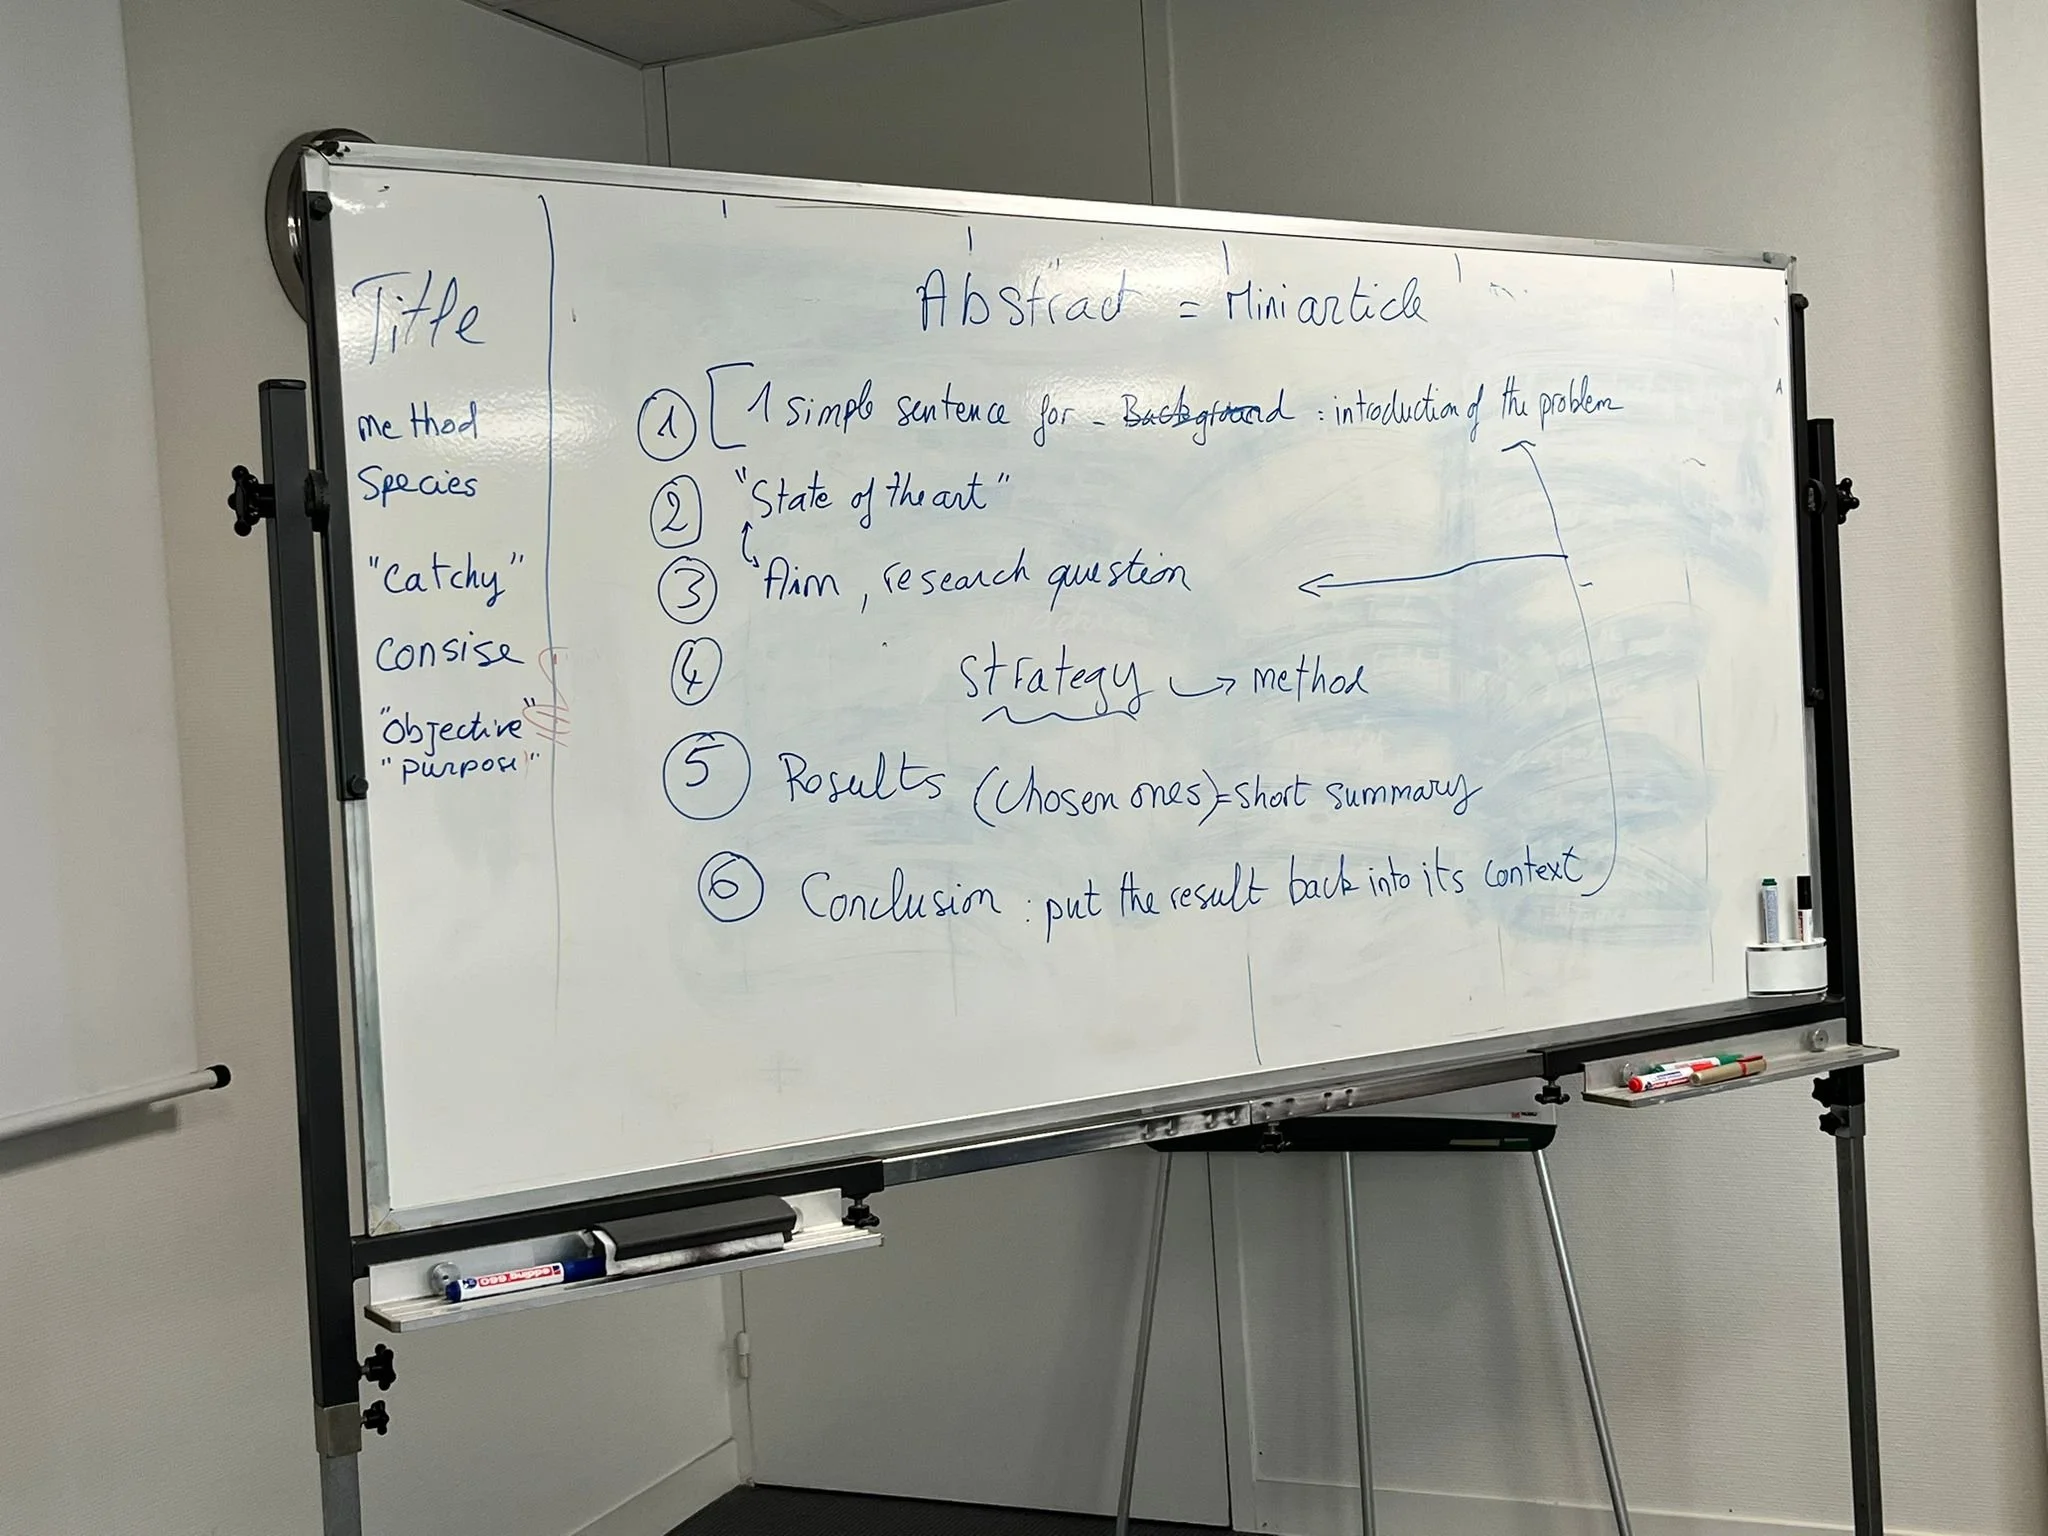 Title
method
Species
"Catchy"
Consise
"Objective"
"purpose"
Abstract = Mini article
1 [ 1 simple sentence for - Background : introduction of the problem
2 "State of the art"
3 Aim, research question
4 Strategy → method
5 Results (Chosen ones) = short summary
6 Conclusion : put the result back into its context
edding 660